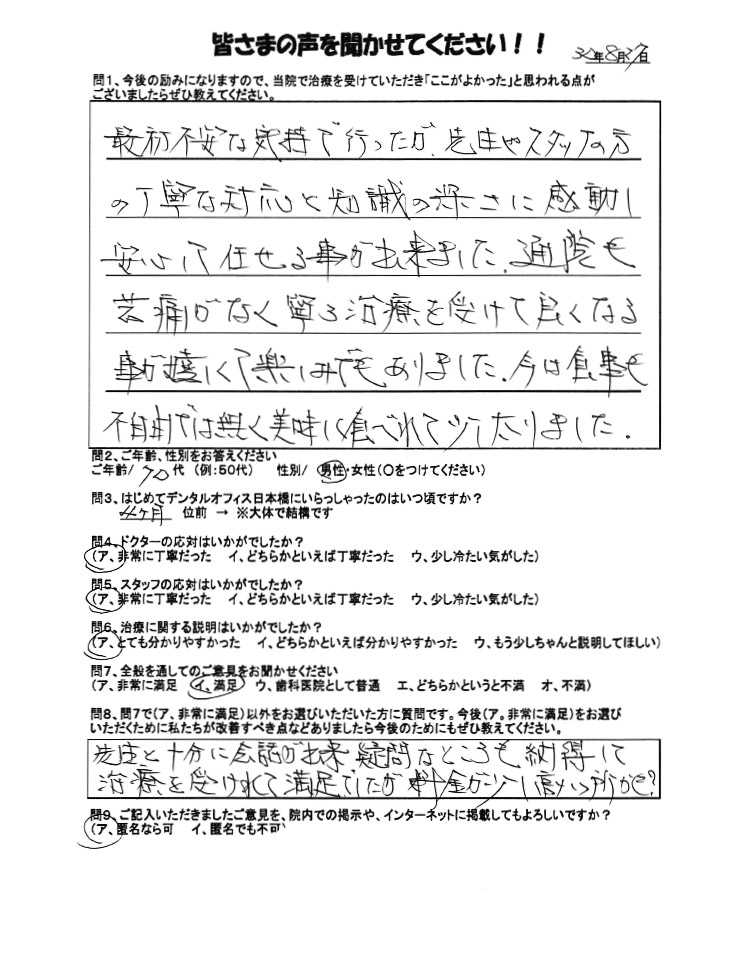 皆さまの声を聞かせてください！！
30年8月31日
問1、今後の励みになりますので、当院で治療を受けていただき「ここがよかった」と思われる点が
ございましたらぜひ教えてください。
最初不安な気持で行ったが、先生やスタッフの方
の丁寧な対応と知識の深さに感動し
安心して任せる事が出来ました。通院も
苦痛がなく寧ろ治療を受けて良くなる
事が嬉しくて楽しみでもありました。今は食事も
不自由では無く美味しく食べれて少し太りました。
問2、ご年齢、性別をお答えください
ご年齢/ 70代 （例：50代） 性別/ 男性・女性（○をつけてください）
問3、はじめてデンタルオフィス日本橋にいらっしゃったのはいつ頃ですか？
4ヶ月 位前 → ※大体で結構です
問4、ドクターの応対はいかがでしたか？
（ア、非常に丁寧だった イ、どちらかといえば丁寧だった ウ、少し冷たい気がした）
問5、スタッフの応対はいかがでしたか？
（ア、非常に丁寧だった イ、どちらかといえば丁寧だった ウ、少し冷たい気がした）
問6、治療に関する説明はいかがでしたか？
（ア、とても分かりやすかった イ、どちらかといえば分かりやすかった ウ、もう少しちゃんと説明してほしい）
問7、全般を通してのご意見をお聞かせください
（ア、非常に満足 イ、満足 ウ、歯科医院として普通 エ、どちらかというと不満 オ、不満）
問8、問7で（ア、非常に満足）以外をお選びいただいた方に質問です。今後（ア。非常に満足）をお選び
いただくために私たちが改善すべき点などありましたら今後のためにもぜひ教えてください。
先生と十分に会話が出来疑問なところも納得して
治療を受けれて満足でしたが料金が少し高い所かも?
問9、ご記入いただきましたご意見を、院内での掲示や、インターネットに掲載してもよろしいですか？
（ア、匿名なら可 イ、匿名でも不可）